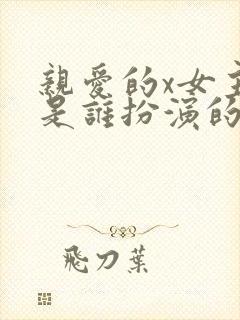 親愛的x女主
是誰扮演的
飛刀葉